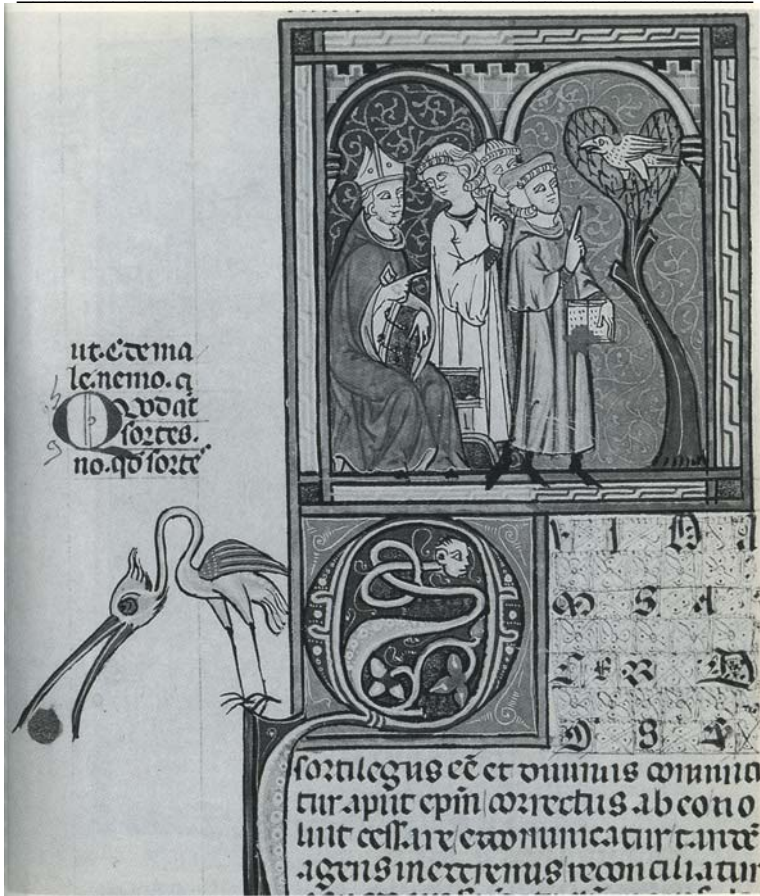 ut. et de ma
le. nemo. q
Quod at
sortes.
no. qđ sorte
Q V I D A
M S A
C E R D
O S
sortilegus eē et diuinus conuinci
tur aput epm̄ correctus ab eo no
luit cessare excommunicatur tandē
agens in extremis reconciliatur